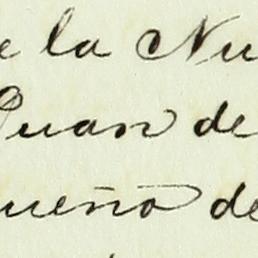 e la Nu
Juan de
ueño de